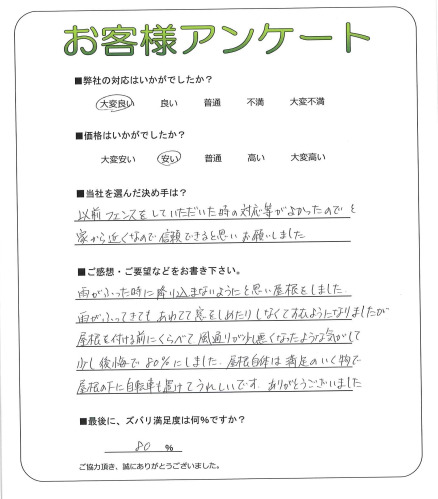 お客様アンケート
■弊社の対応はいかがでしたか？
大変良い 良い 普通 不満 大変不満
■価格はいかがでしたか？
大変安い 安い 普通 高い 大変高い
■当社を選んだ決め手は？
以前フェンスをしていただいた時の対応等がよかったのでと
家から近くなので信頼できると思いお願いしました
■ご感想・ご要望などをお書き下さい。
雨がふった時に降り込まないようにと思い屋根をしました.
雨がふってきてもあわてて窓をしめたりしなくても広ようになりましたが
屋根を付ける前にくらべて風通りが少し悪くなったような気がして
少し後悔で80%にしました. 屋根自体は満足のいく物で
屋根の下に自転車も置けてうれしいです. ありがとうございました
■最後に、ズバリ満足度は何%ですか？
80 %
ご協力頂き、誠にありがとうございました。